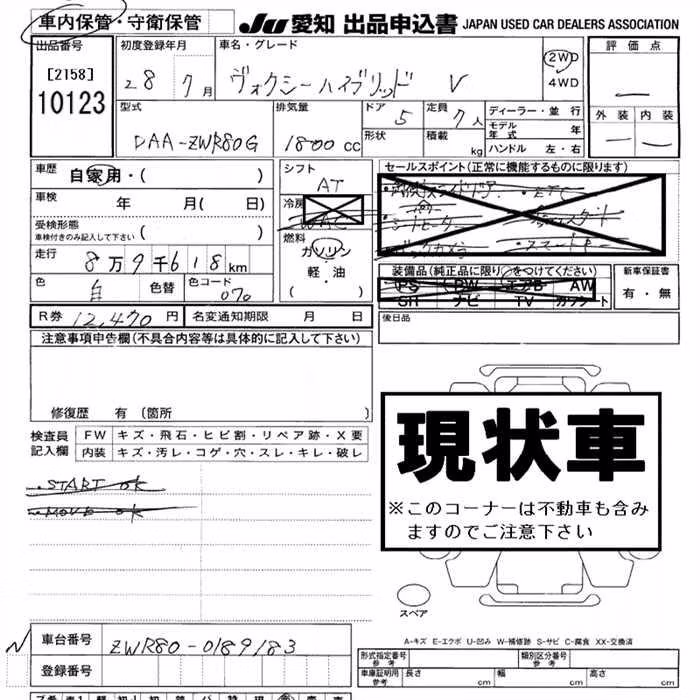 車内保管・守衛保管 JU 愛知 出品申込書 JAPAN USED CAR DEALERS ASSOCIATION
出品番号 [2158] 10123
初度登録年月 28 7月
車名・グレード ヴォクシーハイブリッド V
2WD
4WD
評価点 —
外装 — 内装 —
型式 DAA-ZWR80G
排気量 1800cc
ドア 5
形状
定員 7人
積載 kg
ディーラー・並行
モデル年式 年
ハンドル 左・右
車歴 自家用・( )
車検 年 月( 日)
受検形態
車検付きのみ記入して下さい ( )
走行 8万9千618km
色 白 色替 色コード 070
シフト AT
冷房 WAC
燃料 ガソリン
軽・油
( ・ )
セールスポイント(正常に機能するものに限ります)
・ETC
シートヒーター
・バックカメラ ・スマートキー
装備品(純正品に限り○をつけてください)
PS PW エアB AW
SH ナビ TV カワシート
新車保証書
有・無
R券 12,470円 名変通知期限 月 日
後日品
注意事項申告欄(不具合内容等は具体的に記入して下さい)
修復歴 有(箇所 )
検査員記入欄
FW キズ・飛石・ヒビ割・リペア跡・X要
内装 キズ・汚レ・コゲ・穴・スレ・キレ・破レ
・START OK
・MOVE OK
現状車
※このコーナーは不動車も含みますのでご注意下さい
スペア
A-キズ E-エクボ U-凹み W-補修跡 S-サビ C-腐食 XX-交換済
車台番号 ZWR80-0189183
登録番号
形式指定番号 参考
類別区分番号 参考
車庫証明用 参考 長さ cm 幅 cm 高さ cm